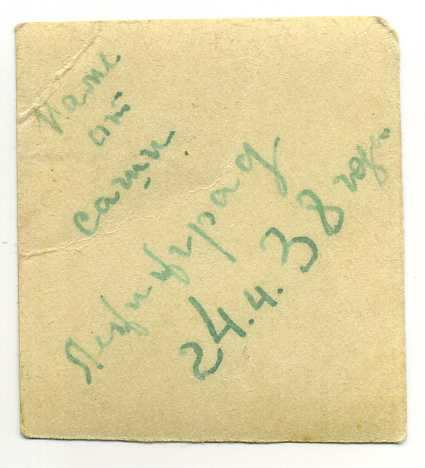 от
саши
Ленинград
24.4.38 года